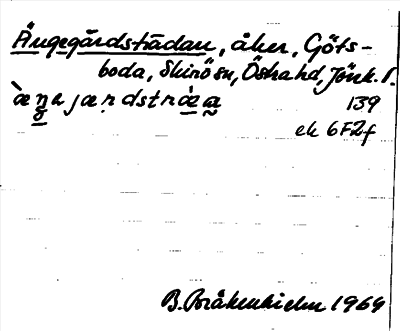 Ängegårdsträdan, åker, Göts-
boda, Skirö sn, Östra hd, Jönk. l.
139
ek 6F2f
B. Bråkenhielm 1969